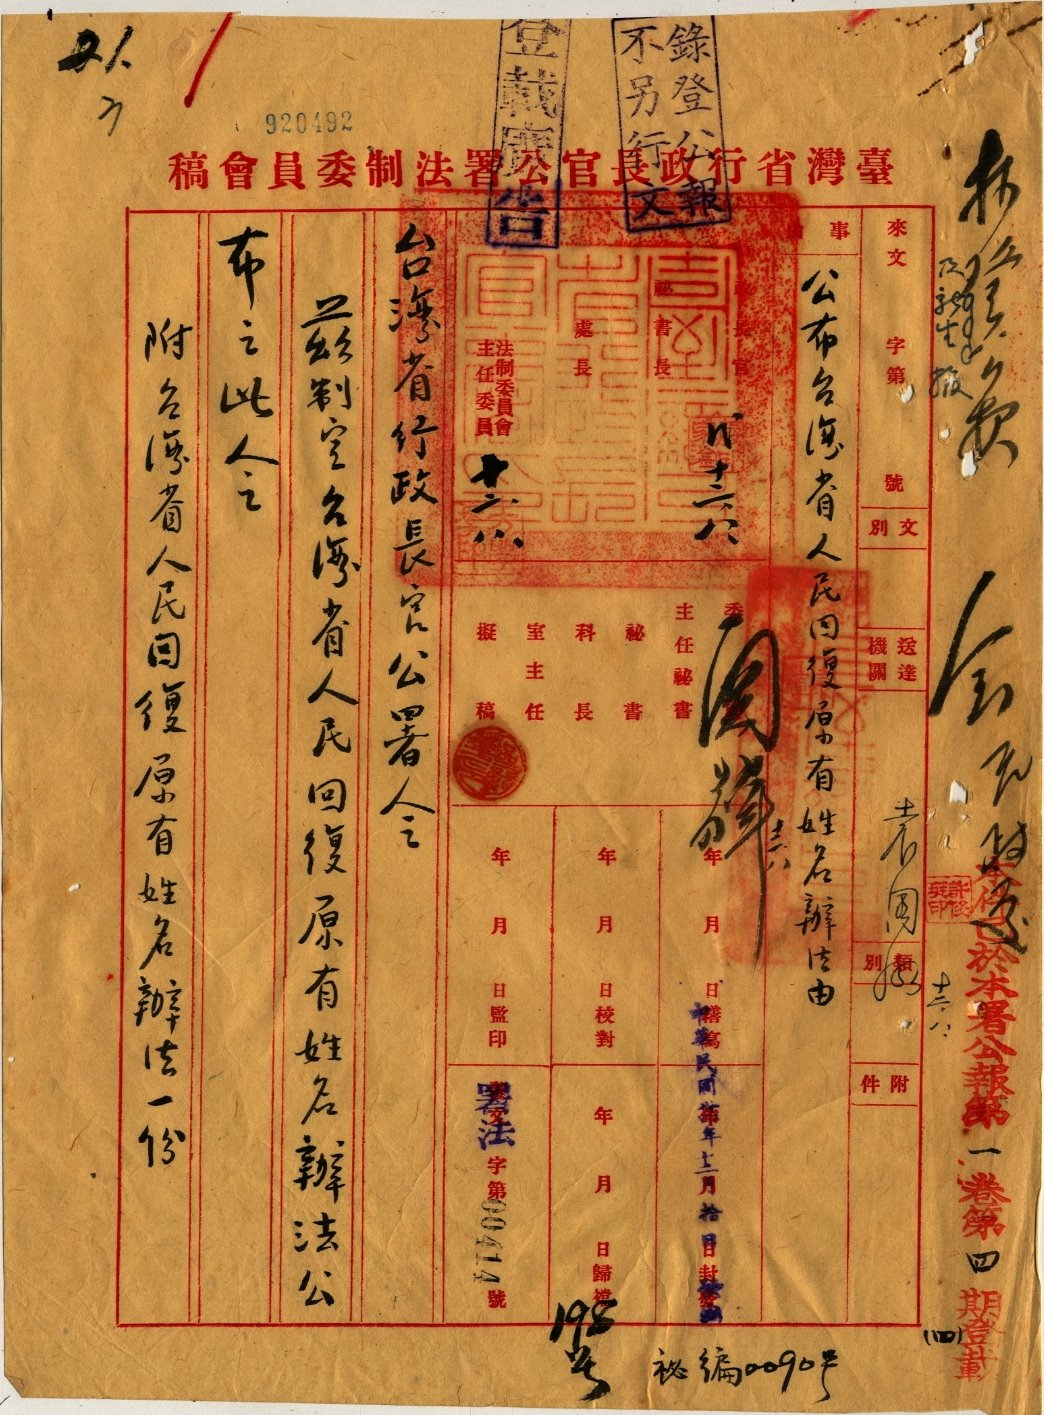 920492
登載廣告
錄登公報
不另行文
臺灣省行政長官公署法制委員會稿
來文 字第 號
文別
送達機關
類別
附件
事由
公布台灣省人民回復原有姓名辦法由
長官
秘書長
處長
法制委員會
主任委員
十二、八
主任秘書
秘書
科長
室主任
擬稿
年 月 日繕寫
年 月 日校對
年 月 日監印
中華民國 年十二月拾日封發
年 月 日歸檔
署法字第00414號
台灣省行政長官公署令
茲制定台灣省人民回復原有姓名辦法公
布之此令
附台灣省人民回復原有姓名辦法一份
本件已於本署公報第一卷第四期登載
(四)
198号
秘編0090号